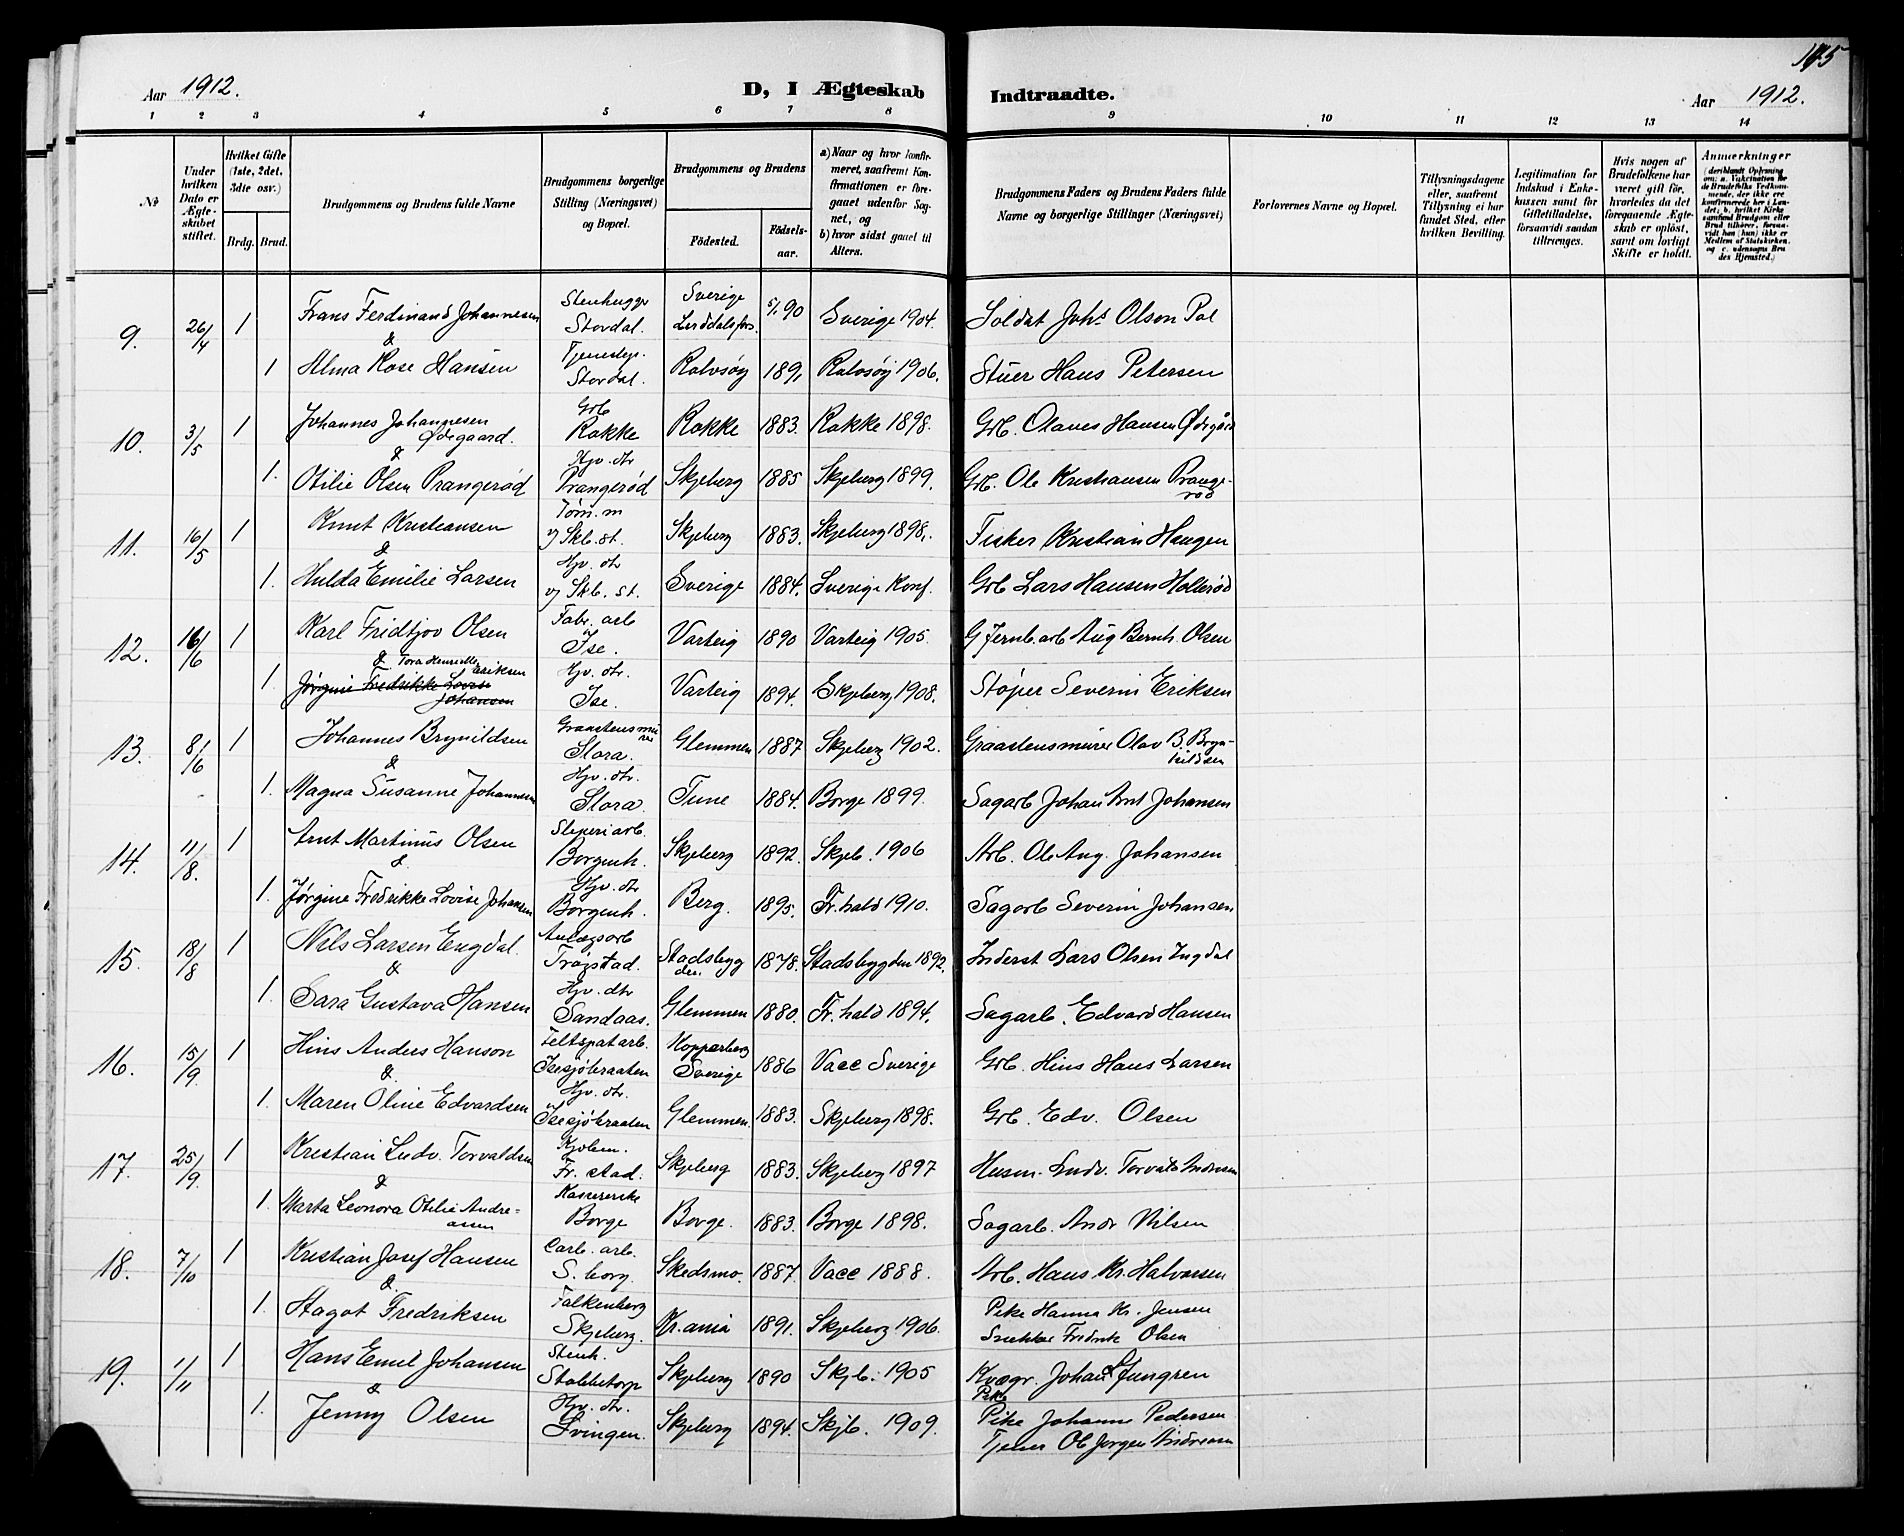 165
Aar 1912.
D, I Ægteskab
Indtraadte.
Aar 1912.
1 2 3 4 5 6 7 8 9 10 11 12 13 14
№
Under hvilken Dato er Ægteskabet stiftet.
Hvilket Gifte (1ste, 2det, 3die osv.)
Brdg. Brud.
Brudgommens og Brudens fulde Navne
Brudgommens borgerlige Stilling (Næringsvei) og Bopæl.
Brudgommens og Brudens
Fødested.
Fødsels-aar.
a) Naar og hvor konfirmeret, saafremt Konfirmationen er foregaaet udenfor Sognet, og
b) hvor sidst gaaet til Alters.
Brudgommens Faders og Brudens Faders fulde Navne og borgerlige Stillinger (Næringsvei)
Forlovernes Navne og Bopæl.
Tillysningsdagene eller, saafremt Tillysning ei har fundet Sted, efter hvilken Bevilling.
Legitimation for Indskud i Enkekassen samt for Giftetilladelse, forsaavidt saadan tiltrænges.
Hvis nogen af Brudefolkene har været gift før, hvorledes da det foregaaende Ægteskab er opløst, samt om lovligt Skifte er holdt.
Anmerkninger (deriblandt Oplysning om: a. Vakcination for de Brudefolks Vedkommende, der ikke ere konfirmerede her i Landet; b. hvilket Kirkesamfund Brudgom eller Brud tilhører, forsaavidt han (hun) ikke er Medlem af Statskirken, og c. udensogns Brudes Hjemsted.)
9. 26/4 1 Frans Ferdinand Johannesen Stenhugger Stordal. Sverige 5/1 90 Sverige 1904. Soldat Johs Olson Pol
&
1 Alma Rose Hansen Stordal. Rolvsøy 1891 Rolvsøy 1906. Stuer Hans Petersen
10. 3/5 1 Johannes Johannesen Ødegaard. Grb Rokke Rokke 1883. Rokke 1898. Grb. Olaves Hansen Ødegård
&
1. Otilie Olsen Prangerød Hjv. dtr Prangerød Skjeberg 1885 Skjeberg 1899. Grb. Ole Kristiansen Prangerød
11. 16/5 1 Knut Kristiansen Tøm. m v/ Skb. st. Skjeberg 1883. Skjeberg 1898. Fisker Kristian Haugen
&
1. Hulda Emilie Larsen Hjv. dtr v/ Skb. st. Sverige 1884. Sverige Konf. Grb Lars Hansen Hollerød
12. 16/6 1 Karl Fridtjov Olsen Fabr. arb Ise. Varteig 1890 Varteig 1905. G Jernb. arb Aug Bernh. Olsen
& Tora Henriette Eriksen
1. Jørgine Fredrikke Lovise Johansen Hjv. dtr. Ise. Varteig 1894. Skjeberg 1908. Støper Severin Eriksen
13. 8/6 1 Johannes Brynildsen Graastensmurer Stora. Glemmen 1887 Skjeberg 1902. Graastensmurer Olav B. Brynildsen
&
1. Magna Susanne Johannesen Hjv. dtr. Stora. Tune 1884. Borge 1899. Sagarb Johan Arnt Johansen
14. 11/8. 1 Arnt Martinus Olsen Sliperiarb. Borgenh. Skjeberg 1892. Skjeb. 1906 Arb. Ole Aug. Johansen
&
1. Jørgine Fredrikke Lovise Johansen Hjv. dtr Borgenh. Berg. 1895. Fr.hald 1910. Sagarb Severin Johansen
15. 18/8 1 Nils Larsen Engdal. Anlægsarb Trøgstad. Stadsbygden. 1878. Stadsbygden 1892. Inderst Lars Olsen Ingdal
&
1. Sara Gustava Hansen Hjv. dtr Sandaas. Glemmen 1880. Fr.hald 1894. Sagarb. Edvard Hansen
16. 15/9. 1 Hins Anders Hanson Feltspatarb. Isesjøbraaten Kopparberg Sverige 1886 Vacc Sverige Grb. Hins Hans Larsen
&
1. Maren Oline Edvardsen Hjv. dtr. Isesjøbraaten Glemmen. 1883. Skjeberg 1898. Grb. Edv. Olsen
17. 25/9. 1 Kristian Ludv. Torvaldsen Fr. stad. Skjeberg 1883. Skjeberg 1897 Husm. Ludv. Torvald Andersen
&
1. Marta Leonora Otilie Andreassen Kassererske Borge Borge. 1883. Borge 1898. Sagarb. Andr Nilsen
18. 7/10 1 Kristian Josef Hansen Carb. arb. S. borg. Skedsmo. 1887. Vacc 1888. Arb. Hans Kr. Halvorsen
&
1. Hagot Fredriksen Falkenberg Skjeberg. Kr.ania 1891. Skjeberg 1906. Pike Hanna Kr. Jensen
Snekker Fredrik Olsen
19. 1/11 1 Hans Emil Johansen Stenh. Stobbetorp Skjeberg 1890 Skjb. 1905 Kvægr. Johan Ljungren
&
1. Jenny Olsen Hjv. dtr. Svingen. Skjeberg 1894. Skjb. 1909. Pike Johanne Pedersen
Tjener Ole Jørgen Andresen